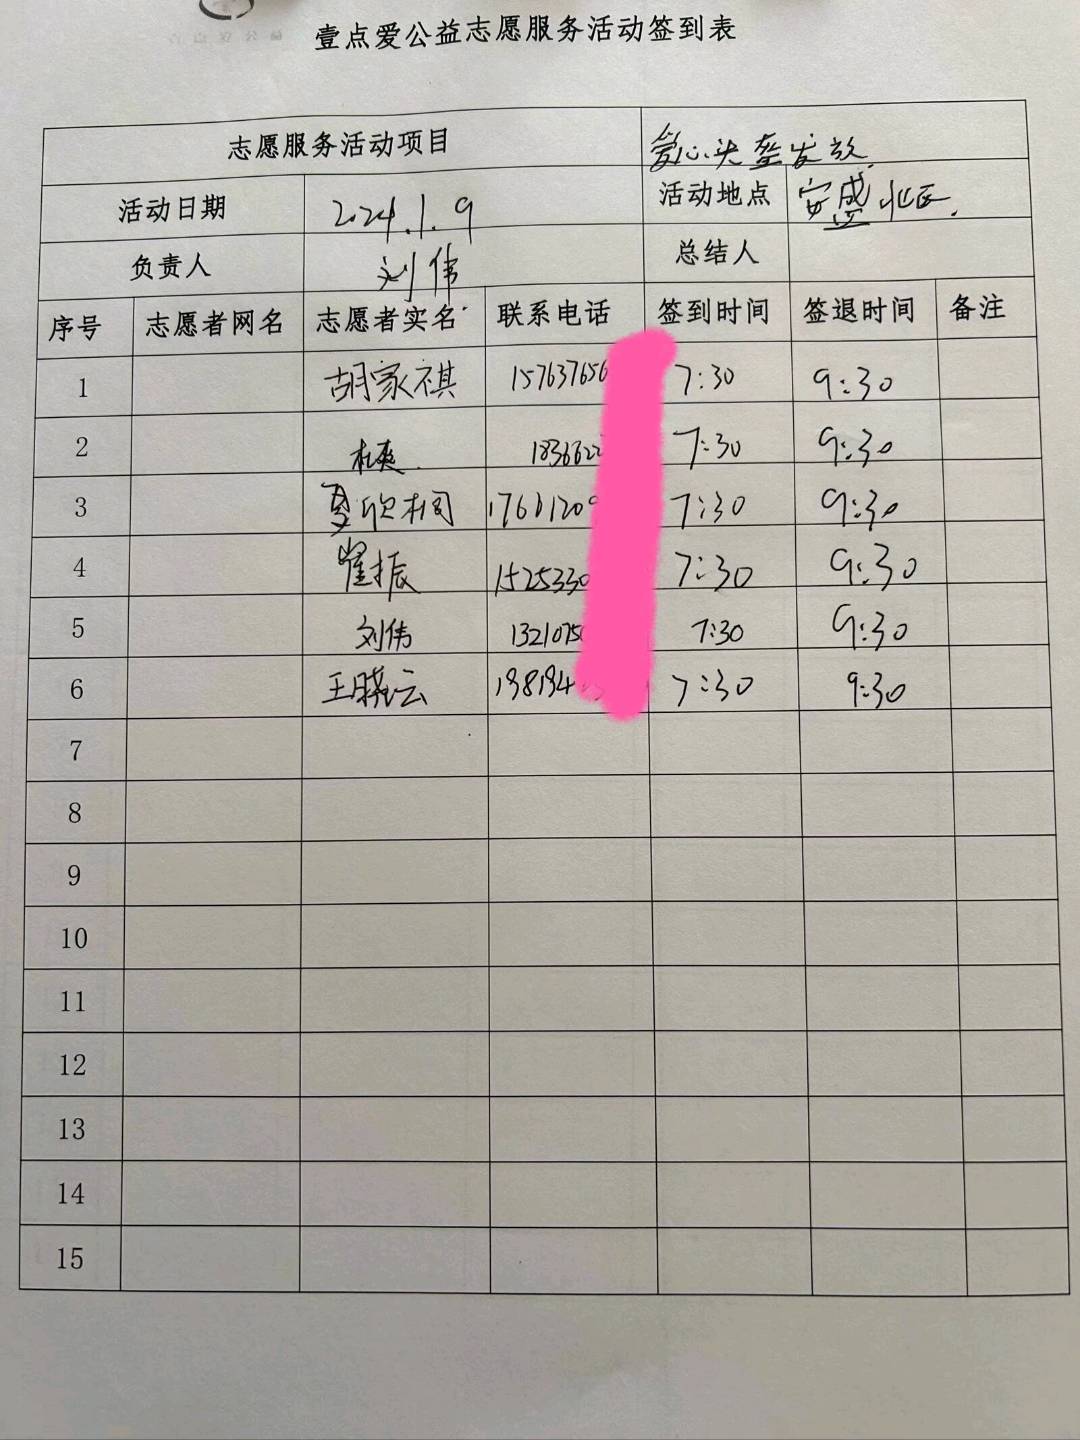 壹点爱公益志愿服务活动签到表
志愿服务活动项目 爱心头盔发放
活动日期 2024.1.9 活动地点 安盛北区.
负责人 刘伟 总结人
序号 志愿者网名 志愿者实名 联系电话 签到时间 签退时间 备注
1 胡家祺 157637656 7:30 9:30
2 杜爽 1836622 7:30 9:30
3 夏欣桐 17661209 7:30 9:30
4 崔振 1525330 7:30 9:30
5 刘伟 1321075 7:30 9:30
6 王晓云 198194 7:30 9:30
7
8
9
10
11
12
13
14
15